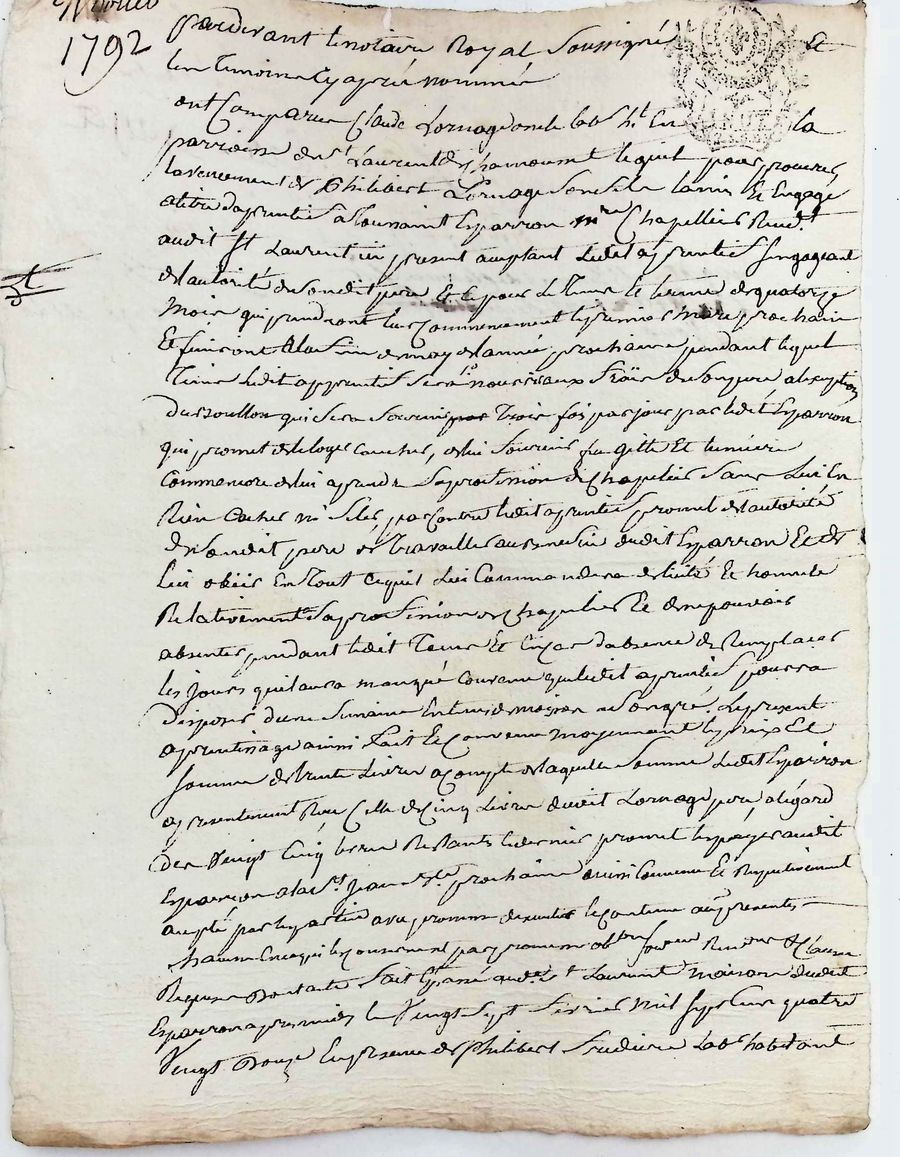 1792
pardevant le notaire Royal Soussigné Et
les temoins cy après nommés
ont Comparus Claude Lornage oncle lab.r h.t En la
parroisse de St Laurent de chamousset lequel pour procurer
lavencement de Philibert Lornage son fils la mis Et Engagé
atitre daprentis a Toussaint Esparron m.re Chapellier Resid.t
audit St Laurent ici present acceptant Ledit aprentis Sengageant
de lautorité de Sondit pere Et ce pour Le Tems Et terme de quatorze
Mois qui prendront leur Commencement le premier Mars prochain
Et finiront A la fin de may de lannée prochaine pendant lequel
Tems Ledit apprentif Sera nourri aux frais de Son pere alexeption
Du Bouillon qui Sera fourni Trois fois par jour par ledit Esparron
qui promet de le loger coucher, de lui fournir feu gitte Et lumiere
Comme encore de lui aprendre Sa profession de Chapelier Sans Lui En
Rien Cacher ni Celer, par contre ledit aprentis promet de lautorité
de Sondit pere de Travailler au Benefice dudit Esparron Et de
Lui obéir En Tout Ce quil Lui Commandera de licité Et honnete
Relativement a Sa profession de Chapelier Et de ne pouvoir
absenter pendant ledit Tems Et En Cas dabsence de Remplacer
les Jours quil aura manqué Convenu que ledit aprentis pourra
Disposer dune Semaine En tems de moisson a Son gré. Le present
aprentissage ainsi fait Et Convenu moyennant le prix Et
Somme de trente Livres a Compte de laquelle Somme Ledit Esparron
a presentement Reçu Celle de Cinq Livres dudit Lornage pere, a legard
Des Vingt Cinq livres Restants Ce dernier promet les payer audit
Esparron a la St Jean B.te prochaine ainsi Convenu Et Respectivement
accepté par les parties avec promesse dexecuter le Contenu aux presentes
chacune En ce qui les Concernent par promesse ob.on Soum.on Renon.on & Clauses
Requises Dont acte fait Et passé aud.t St Laurent Maison dudit
Esparron apres midy le Vingt Sept fevrier Mil Sept Cens quatre
Vingt Douze En presence de Philibert Lab.r habitant